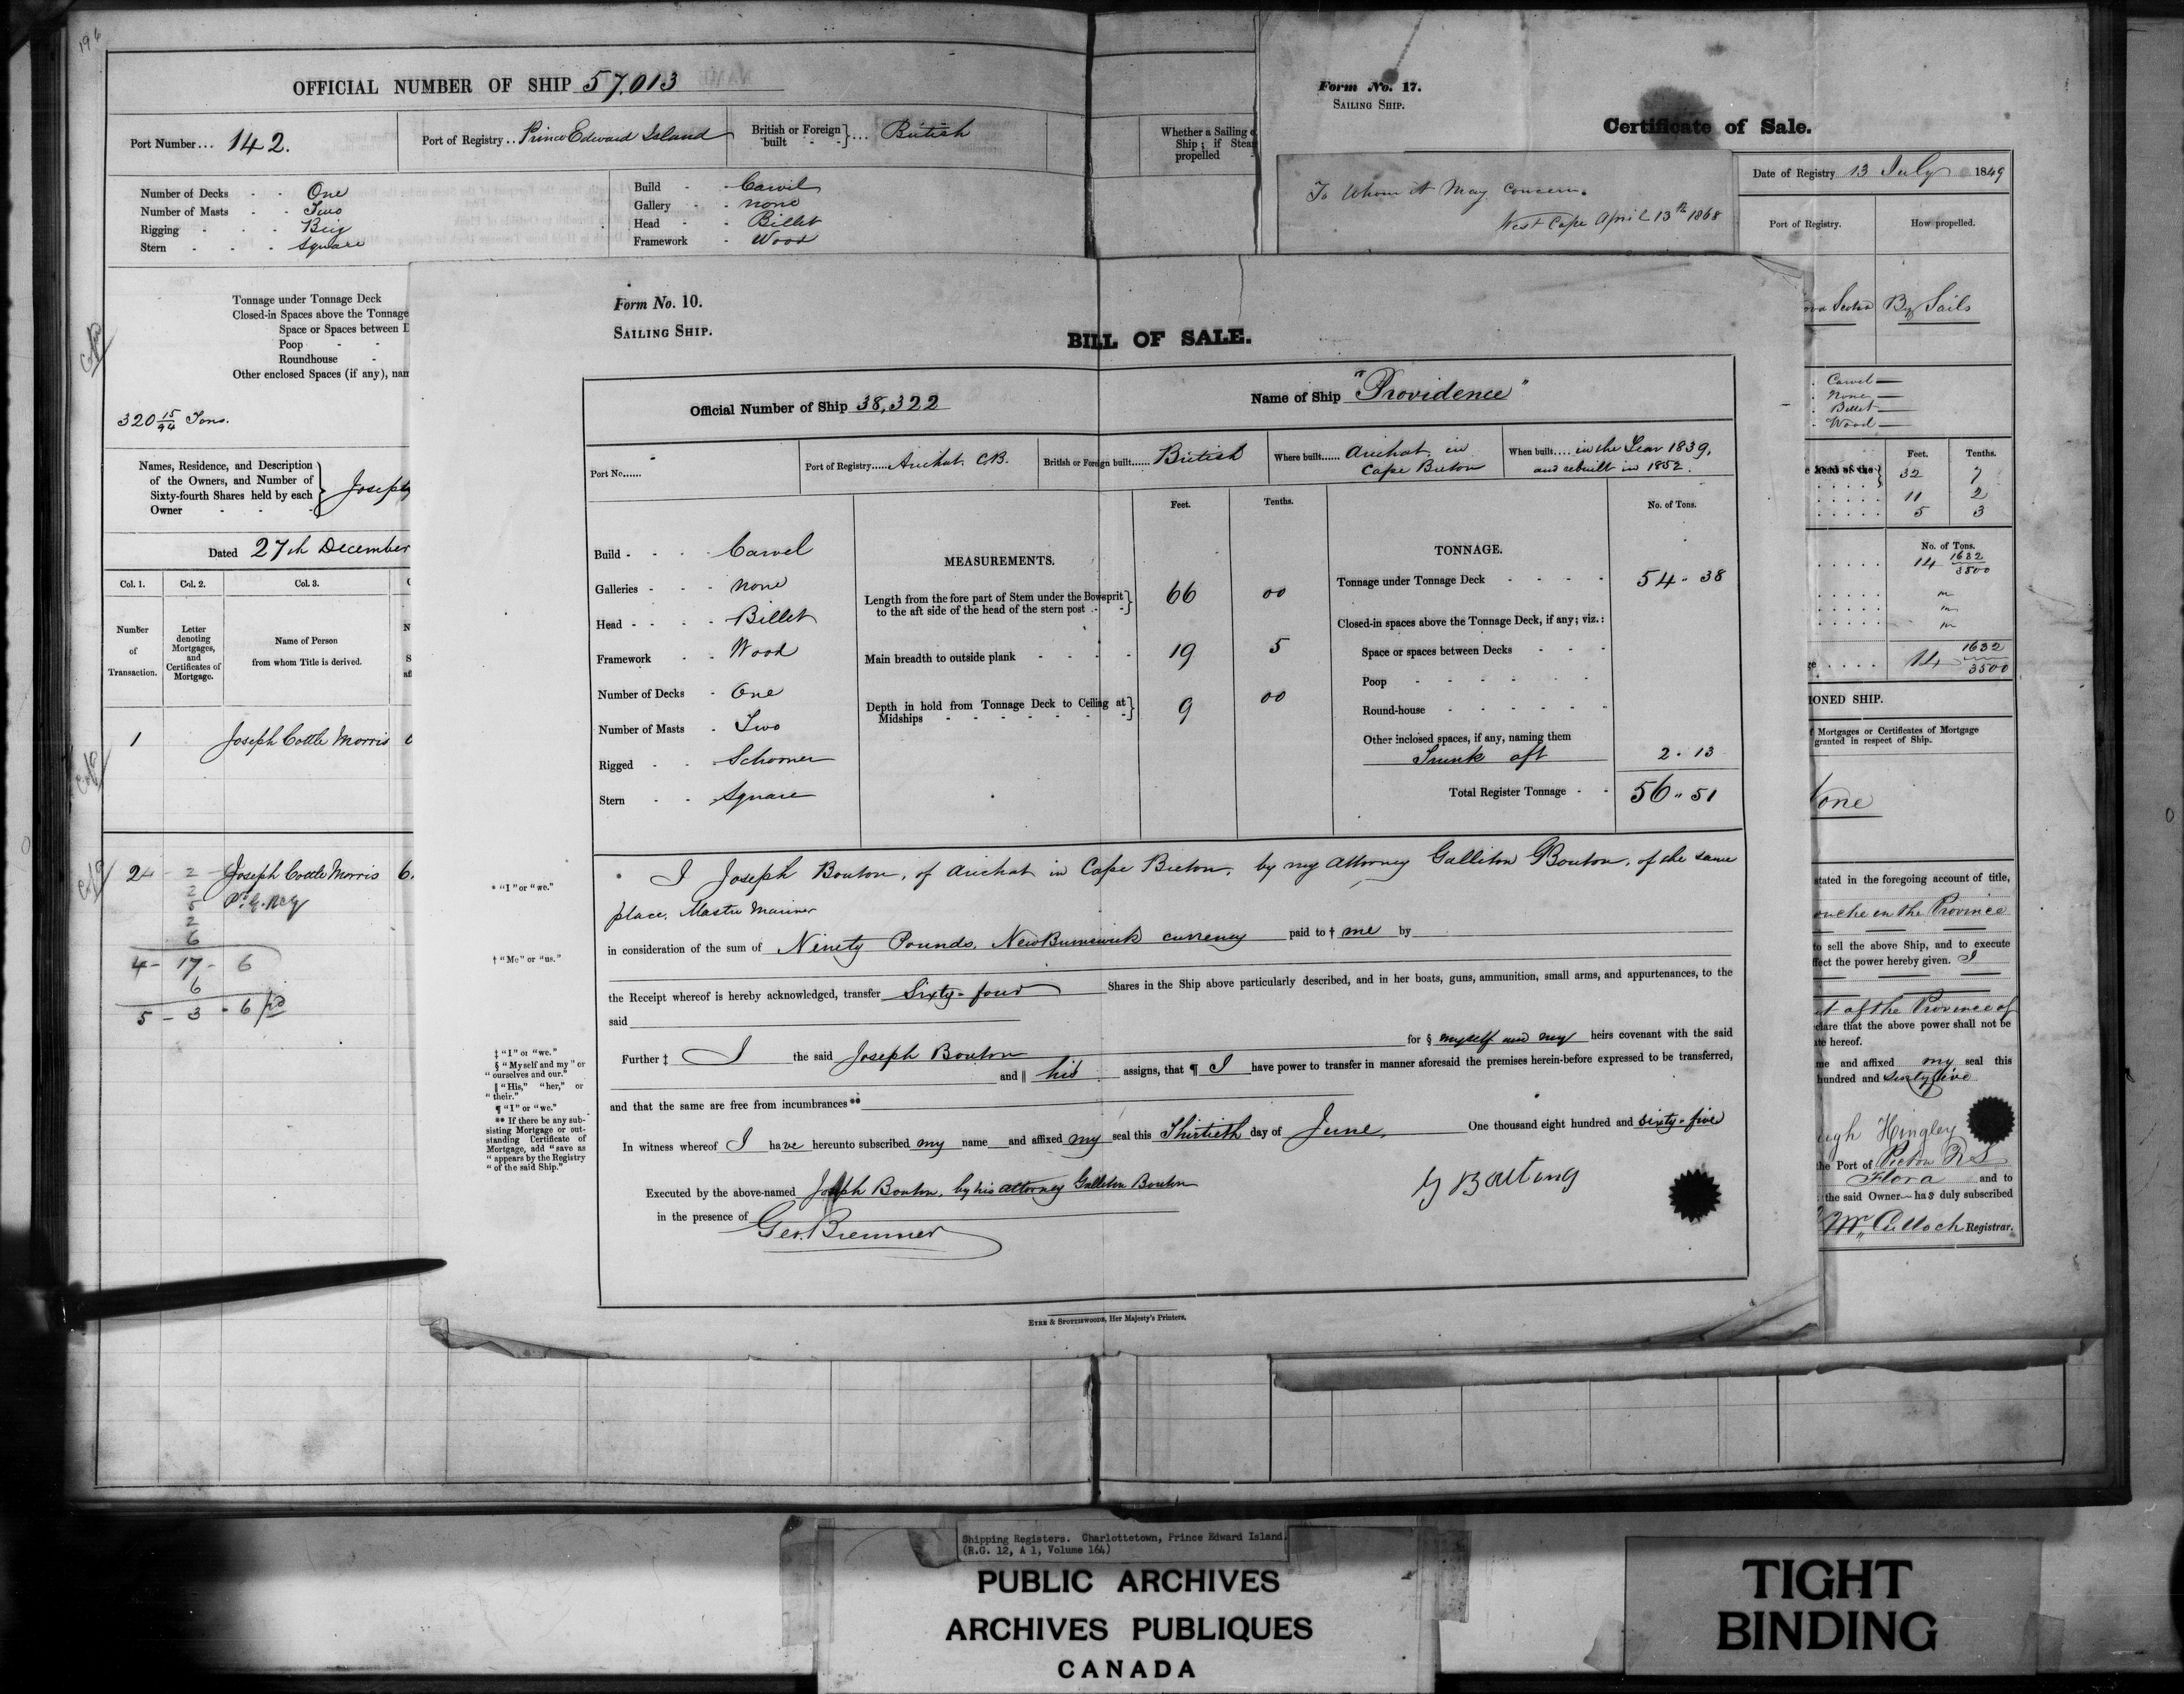 196
OFFICIAL NUMBER OF SHIP 57,013
Port Number... 142.
Port of Registry.. Prince Edward Island
British or Foreign built - - }... British
Number of Decks - - One
Number of Masts - - Two
Rigging - - - Brig
Stern - - - Square
Build - - Carvil
Gallery - - none
Head - - Billet
Framework - Wood
Whether a Sailing o
Ship; if Steam
propelled -
Tonnage under Tonnage Deck
Closed-in Spaces above the Tonnage
Space or Spaces between D
Poop - -
Roundhouse -
Other enclosed Spaces (if any), nam
320 15/94 Tons.
Names, Residence, and Description
of the Owners, and Number of
Sixty-fourth Shares held by each
Owner - - - } Joseph
Dated 27th December
Col. 1. Col. 2. Col. 3.
Number of Transaction.
Letter denoting Mortgages, and Certificates of Mortgage.
Name of Person from whom Title is derived.
1 Joseph Cottle Morris
2 Joseph Cottle Morris 6.
2
2
5
2
6
4 - 17 - 6
6
5 - 3 - 6 pd
Form No. 17.
SAILING SHIP.
Certificate of Sale.
To Whom it May Concern.
West Cape April 13th 1868
Date of Registry 13 July 1849
Port of Registry. How propelled.
ova Scotia By Sails
Carvel
None
Billet
Wood
Feet. Tenths.
e head of the } 32 7
11 2
5 3
No. of Tons.
14 1632/3500
14 1632/3500
IONED SHIP.
f Mortgages or Certificates of Mortgage
granted in respect of Ship.
None
stated in the foregoing account of title,
ouche in the Province
to sell the above Ship, and to execute
ffect the power hereby given. I
t of the Province of
clare that the above power shall not be
ate hereof.
me and affixed my seal this
hundred and Sixty five
ugh Hingley
the Port of Pictou N S
Flora and to
the said Owner has duly subscribed
McCulloch Registrar.
Form No. 10.
SAILING SHIP.
BILL OF SALE.
Official Number of Ship 38,322
Name of Ship "Providence"
Port No...... -
Port of Registry..... Arichat CB.
British or Foreign built...... British
Where built...... Arichat in Cape Breton
When built.... in the Year 1839, and rebuilt in 1852.
Build - - - - Carvel
Galleries - - - none
Head - - - - Billet
Framework - - Wood
Number of Decks - One
Number of Masts - Two
Rigged - - Schooner
Stern - - Square
MEASUREMENTS.
Feet. Tenths.
Length from the fore part of Stem under the Bowsprit
to the aft side of the head of the stern post - - } 66 00
Main breadth to outside plank - - - - 19 5
Depth in hold from Tonnage Deck to Ceiling at
Midships - - - - - - - } 9 00
TONNAGE.
No. of Tons.
Tonnage under Tonnage Deck - - - - 54 " 38
Closed-in spaces above the Tonnage Deck, if any; viz.:
Space or spaces between Decks - - -
Poop - - - - - -
Round-house - - - - - -
Other inclosed spaces, if any, naming them
Trunk aft 2 . 13
Total Register Tonnage - - 56 " 51
* "I" or "we."
* I Joseph Bouton, of Arichat in Cape Breton, by my Attorney Galliton Bouton, of the same
place, Master Mariner
† "Me" or "us."
in consideration of the sum of Ninety Pounds, New Brunswick currency paid to † me by
the Receipt whereof is hereby acknowledged, transfer Sixty-four Shares in the Ship above particularly described, and in her boats, guns, ammunition, small arms, and appurtenances, to the
said
Further ‡ I the said Joseph Bouton for § myself and my heirs covenant with the said
and ‖ his assigns, that ¶ I have power to transfer in manner aforesaid the premises herein-before expressed to be transferred,
and that the same are free from incumbrances **
‡ "I" or "we."
§ "Myself and my" or
"ourselves and our."
‖ "His," "her," or
"their."
¶ "I" or "we."
** If there be any sub-
sisting Mortgage or out-
standing Certificate of
Mortgage, add "save as
"appears by the Registry
"of the said Ship."
In witness whereof I have hereunto subscribed my name and affixed my seal this Thirtieth day of June, One thousand eight hundred and sixty-five
Executed by the above-named Joseph Bouton, by his attorney Galliton Bouton
in the presence of
Geo. Bremner
EYRE & SPOTTISWOODE, Her Majesty's Printers.
Shipping Registers. Charlottetown, Prince Edward Island.
(R.G. 12, A 1, Volume 164)
PUBLIC ARCHIVES
ARCHIVES PUBLIQUES
CANADA
TIGHT
BINDING